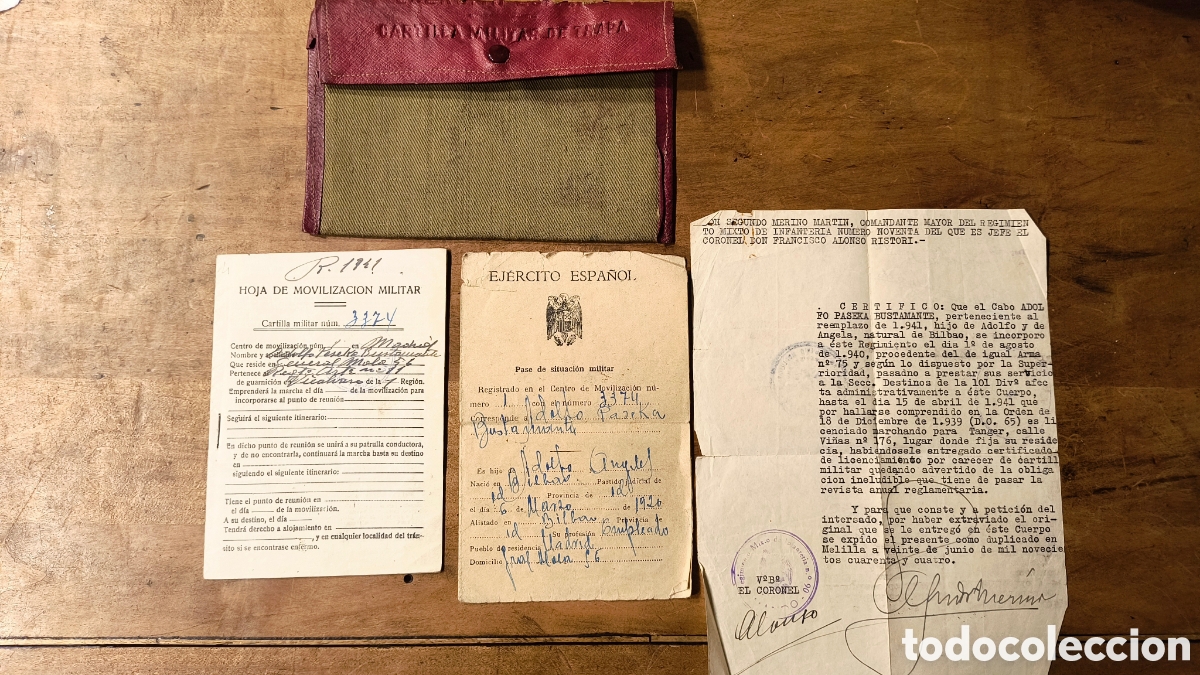 CARTILLA MILITAR DE TROPA
R. 1941.
HOJA DE MOVILIZACION MILITAR
Cartilla militar núm. 3374
Centro de movilización núm. en Madrid
Nombre y Adolfo Paseka Bustamante
Que reside en General Mola 66
Pertenece
de guarnición de la Región.
Emprenderá la marcha el día de la movilización para
incorporarse al punto de reunión
Seguirá el siguiente itinerario:
En dicho punto de reunión se unirá a su patrulla conductora,
y de no encontrarla, continuará la marcha hasta su destino
en
siguiendo el siguiente itinerario:
Tiene el punto de reunión en
el día de la movilización.
A su destino, el día
Tendrá derecho a alojamiento en
y en cualquier localidad del trán-
sito si se encontrase enfermo.
EJÉRCITO ESPAÑOL
Pase de situación militar
Registrado en el Centro de Movilización nú-
mero 1 con el número 3374
Corresponde a Adolfo Paseka
Bustamante
Es hijo de Adolfo Angel
Nació en Bilbao Partido judicial de
id Provincia de id
el día 6 de Marzo de 1920
Alistado en Bilbao Provincia de
id Su profesión Empleado
Pueblo residencia Madrid
Domicilio Gral Mola 66
DON SEGUNDO MERINO MARTIN, COMANDANTE MAYOR DEL REGIMIEN
TO MIXTO DE INFANTERIA NUMERO NOVENTA DEL QUE ES JEFE EL
CORONEL DON FRANCISCO ALONSO RISTORI.-
C E R T I F I C O: Que el Cabo ADOL
FO PASEKA BUSTAMANTE, perteneciente al
reemplazo de 1.941, hijo de Adolfo y de
Angela, natural de Bilbao, se incorporo
a éste Regimiento el dia 1º de agosto
de 1.940, procedente del de igual Arma
nº 75 y según lo dispuesto por la Supe-
rioridad, pasadno a prestar sus servicio
a la Secc. Destinos de la 101 Divº afec
ta administrativamente a éste Cuerpo,
hasta el dia 15 de abril de 1.941 que
por hallarse comprendido en la Orden de
18 de Diciembre de 1.939 (D.O. 65) es li
cenciado marchando para Tanger, calle
Viñas nº 176, lugar donde fija su reside
cia, habiéndosele entregado certificado
de licenciamiento por carecer de cartill
militar quedando advertido de la obliga
cion ineludible que tiene de pasar la
revista anual reglamentaria.
Y para que conste y a petición del
interesado, por haber extraviado el ori-
ginal que se le entregó en éste Cuerpo
se expido el presente como duplicado en
Melilla a veinte de junio de mil novecie
tos cuarenta y cuatro.
VºBº
EL CORONEL
Alonso
todocoleccion